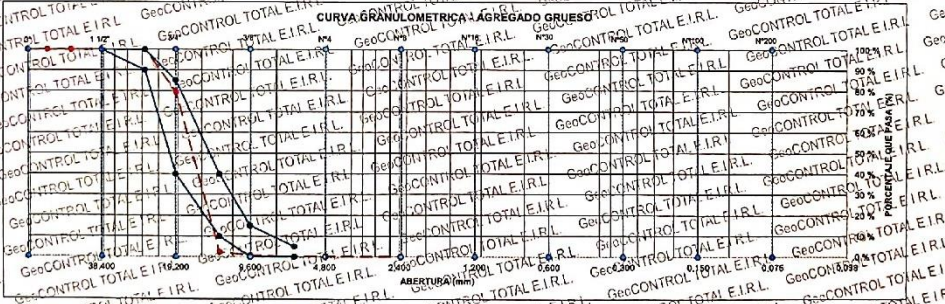 CURVA GRANULOMETRICA : AGREGADO GRUESO
1 1/2" 3/4" 3/8" N°4 N°8 N°16 N°30 N°50 N°100 N°200
100 %
90 %
80 %
70 %
60 %
50 %
40 %
30 %
20 %
10 %
0 %
PORCENTAJE QUE PASA (%)
38,400 19,200 9,600 4,800 2,400 1,200 0,600 0,300 0,150 0,075
ABERTURA (mm)
GeoCONTROL TOTAL E.I.R.L.